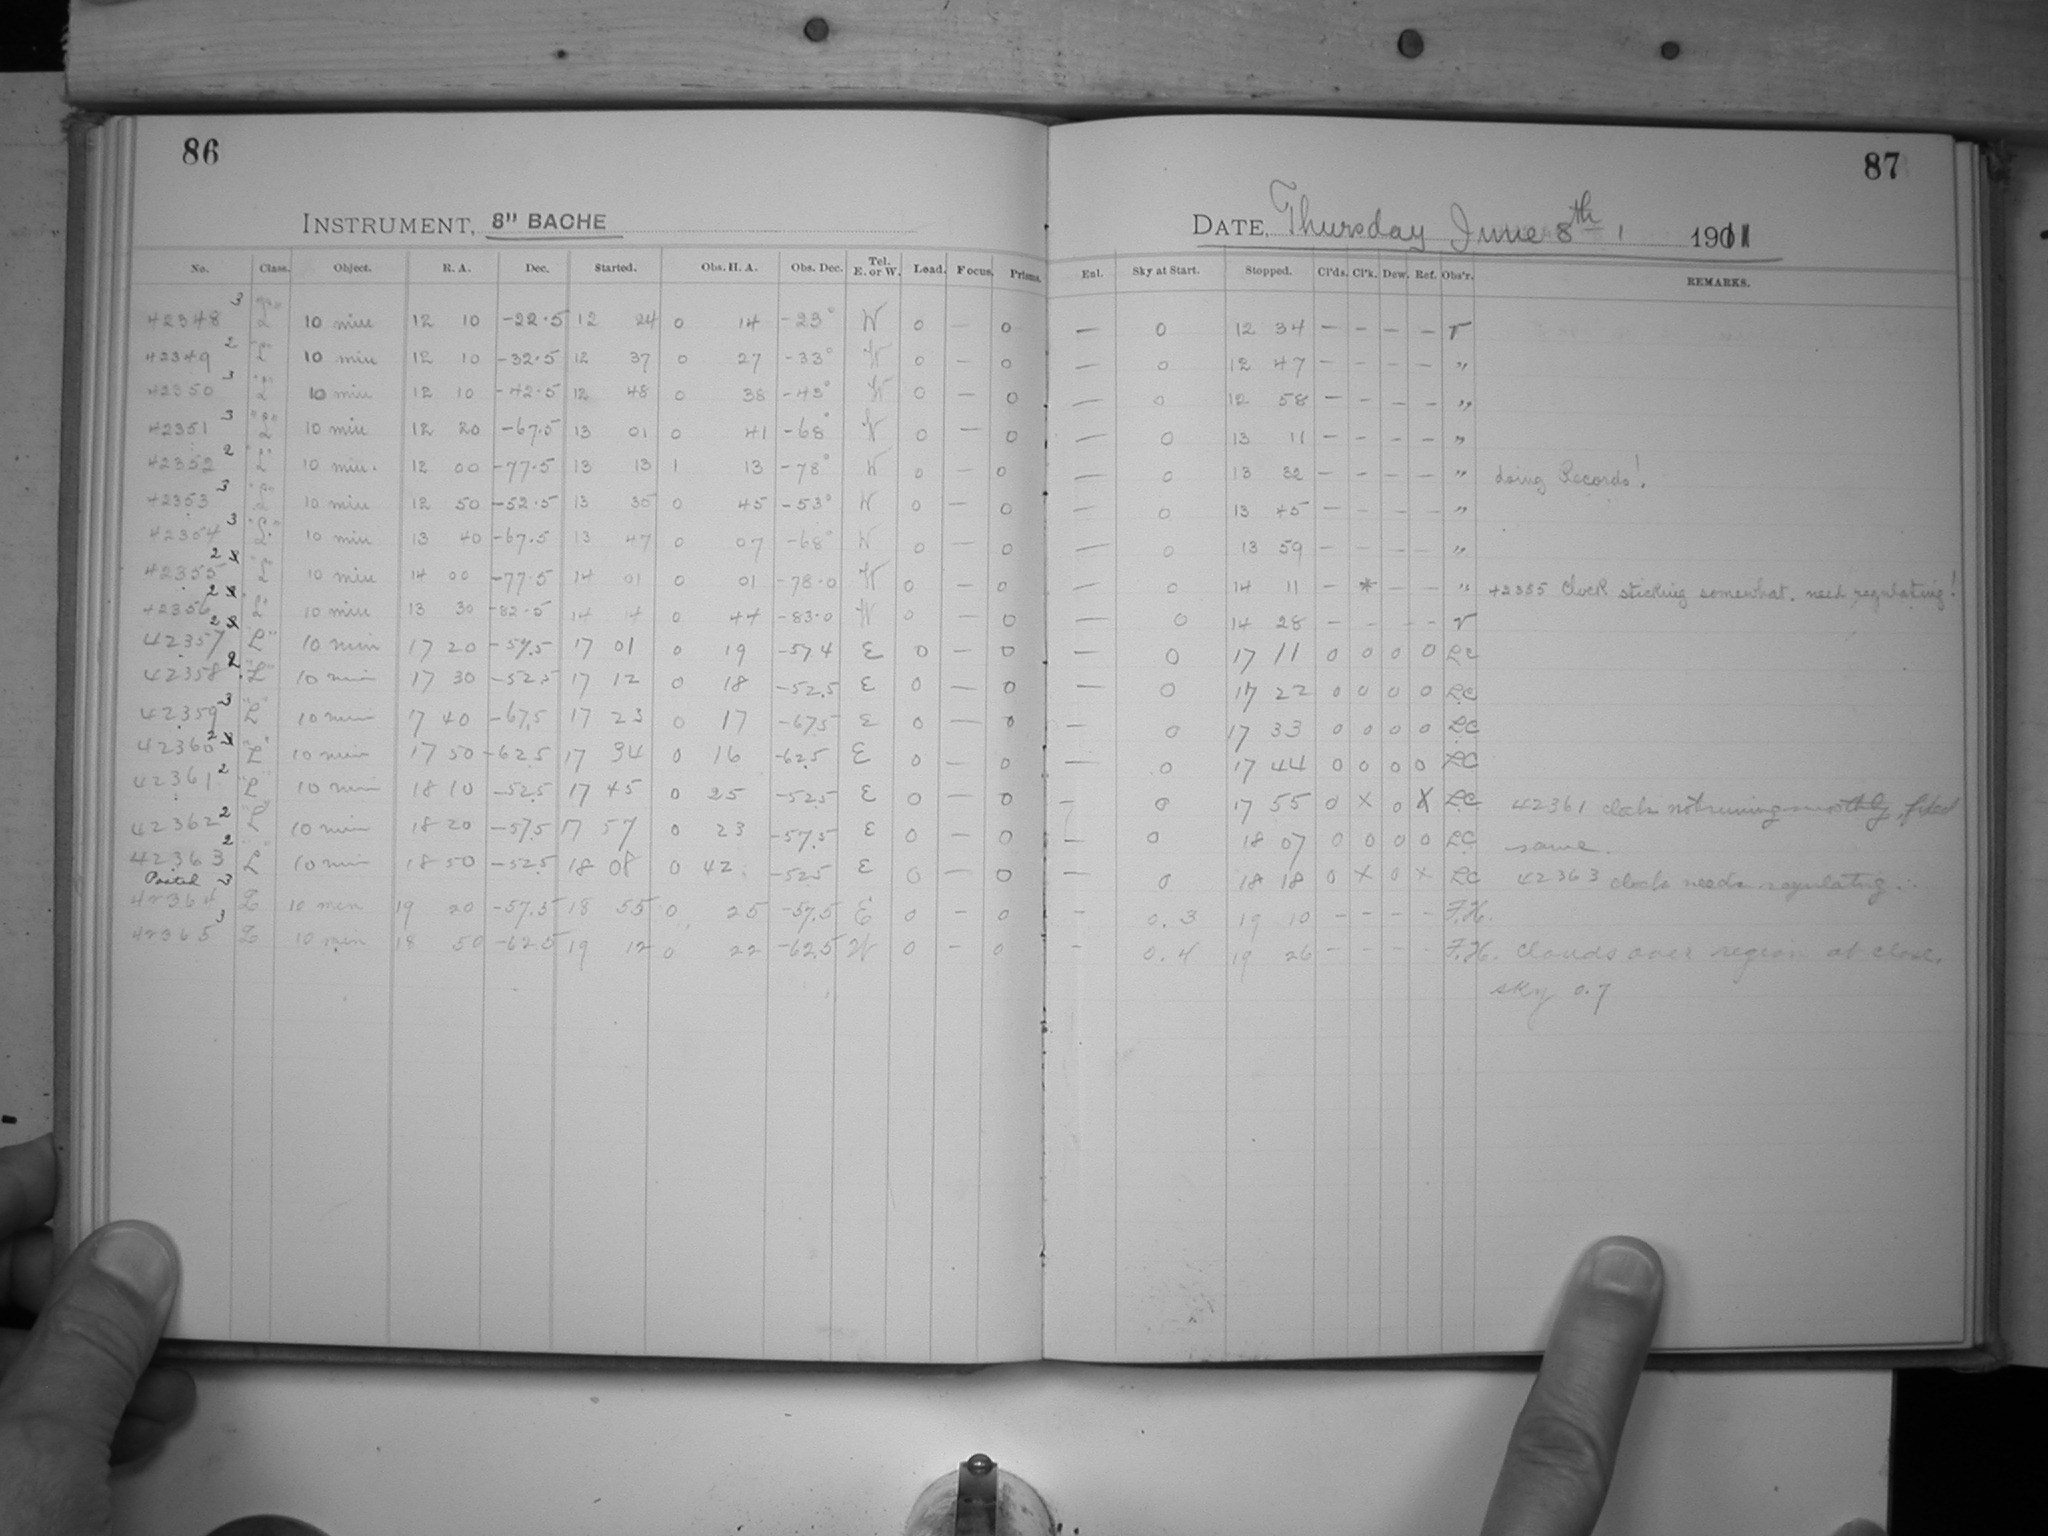 86
87
INSTRUMENT, 8" BACHE
DATE, Thursday June 8th 1911
No. Class. Object. R. A. Dec. Started. Obs. H. A. Obs. Dec. Tel. E. or W. Load. Focus. Prisms. Enl. Sky at Start. Stopped. Cl'ds. Cl'k. Dew. Ref. Obs'r. REMARKS.
42348 3 "L" 10 min 12 10 -22.5 12 24 0 14 -23° W 0 — 0 — 0 12 34 — — — — V
42349 2 "L" 10 min 12 10 -32.5 12 37 0 27 -33° W 0 — 0 — 0 12 47 — — — — "
42350 3 "L" 10 min 12 10 -42.5 12 48 0 38 -43° W 0 — 0 — 0 12 58 — — — — "
42351 3 "L" 10 min 12 20 -67.5 13 01 0 41 -68° W 0 — 0 — 0 13 11 — — — — "
42352 2 "L" 10 min. 12 00 -77.5 13 13 1 13 -78° W 0 — 0 — 0 13 32 — — — — " doing Records!
42353 3 "L" 10 min 12 50 -52.5 13 35 0 45 -53° W 0 — 0 — 0 13 45 — — — — "
42354 3 "L" 10 min 13 40 -67.5 13 47 0 07 -68° W 0 — 0 — 0 13 59 — — — — "
42355 2 "L" 10 min 14 00 -77.5 14 01 0 01 -78.0 W 0 — 0 — 0 14 11 — * — — " 42355 Clock sticking somewhat. need regulating!
42356 2 "L" 10 min 13 30 -82.5 14 14 0 44 -83.0 W 0 — 0 — 0 14 28 — — — — V
42357 2 "L" 10 min 17 20 -57.5 17 01 0 19 -57.4 E 0 — 0 — 0 17 11 0 0 0 0 LC
42358 2 "L" 10 min 17 30 -52.5 17 12 0 18 -52.5 E 0 — 0 — 0 17 22 0 0 0 0 LC
42359 3 "L" 10 min 17 40 -67.5 17 23 0 17 -67.5 E 0 — 0 — 0 17 33 0 0 0 0 LC
42360 2 "L" 10 min 17 50 -62.5 17 34 0 16 -62.5 E 0 — 0 — 0 17 44 0 0 0 0 LC
42361 2 "L" 10 min 18 10 -52.5 17 45 0 25 -52.5 E 0 — 0 — 0 17 55 0 X 0 X LC 42361 clock not running smoothly, fixed
42362 2 "L" 10 min 18 20 -57.5 17 57 0 23 -57.5 E 0 — 0 — 0 18 07 0 0 0 0 LC same.
42363 2 L 10 min 18 50 -52.5 18 08 0 42 -52.5 E 0 — 0 — 0 18 18 0 X 0 X LC 42363 clock needs regulatng.
Posted
42364 3 L 10 min 19 20 -57.5 18 55 0 25 -57.5 E 0 — 0 — 0.3 19 10 — — — — F.H.
42365 3 L 10 min 18 50 -62.5 19 12 0 22 -62.5 W 0 — 0 — 0.4 19 26 — — — — F.H. Clouds over region at close,
sky 0.7